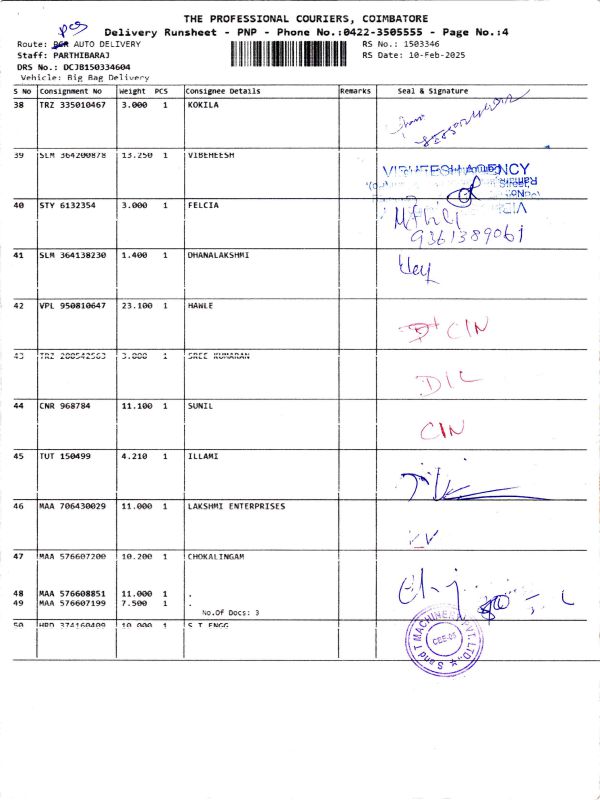 THE PROFESSIONAL COURIERS, COIMBATORE
Delivery Runsheet - PNP - Phone No.:0422-3505555 - Page No.:4
pcs
Route: AUTO DELIVERY RS No.: 1503346
Staff: PARTHIBARAJ RS Date: 10-Feb-2025
DRS No.: DCJB150334604
Vehicle: Big Bag Delivery
S No Consignment No Weight PCS Consignee Details Remarks Seal & Signature
38 TRZ 335010467 3.000 1 KOKILA
39 SLM 364200878 13.250 1 VIBEHEESH
VIBHEESH AGENCY
40 STY 6132354 3.000 1 FELCIA
9361389061
41 SLM 364138230 1.400 1 DHANALAKSHMI
42 VPL 950810647 23.100 1 HAWLE
CIN
43 TRZ 200542563 3.000 1 SREE KUMARAN
D/L
44 CNR 968784 11.100 1 SUNIL
CIN
45 TUT 150499 4.210 1 ILLAMI
46 MAA 706430029 11.000 1 LAKSHMI ENTERPRISES
47 MAA 576607200 10.200 1 CHOKALINGAM
48 MAA 576608851 11.000 1 .
49 MAA 576607199 7.500 1 .
No.Of Docs: 3
50 HRD 374160409 10.000 1 S T ENGG
S and T MACHINERY PVT. LTD.,
CBE-05